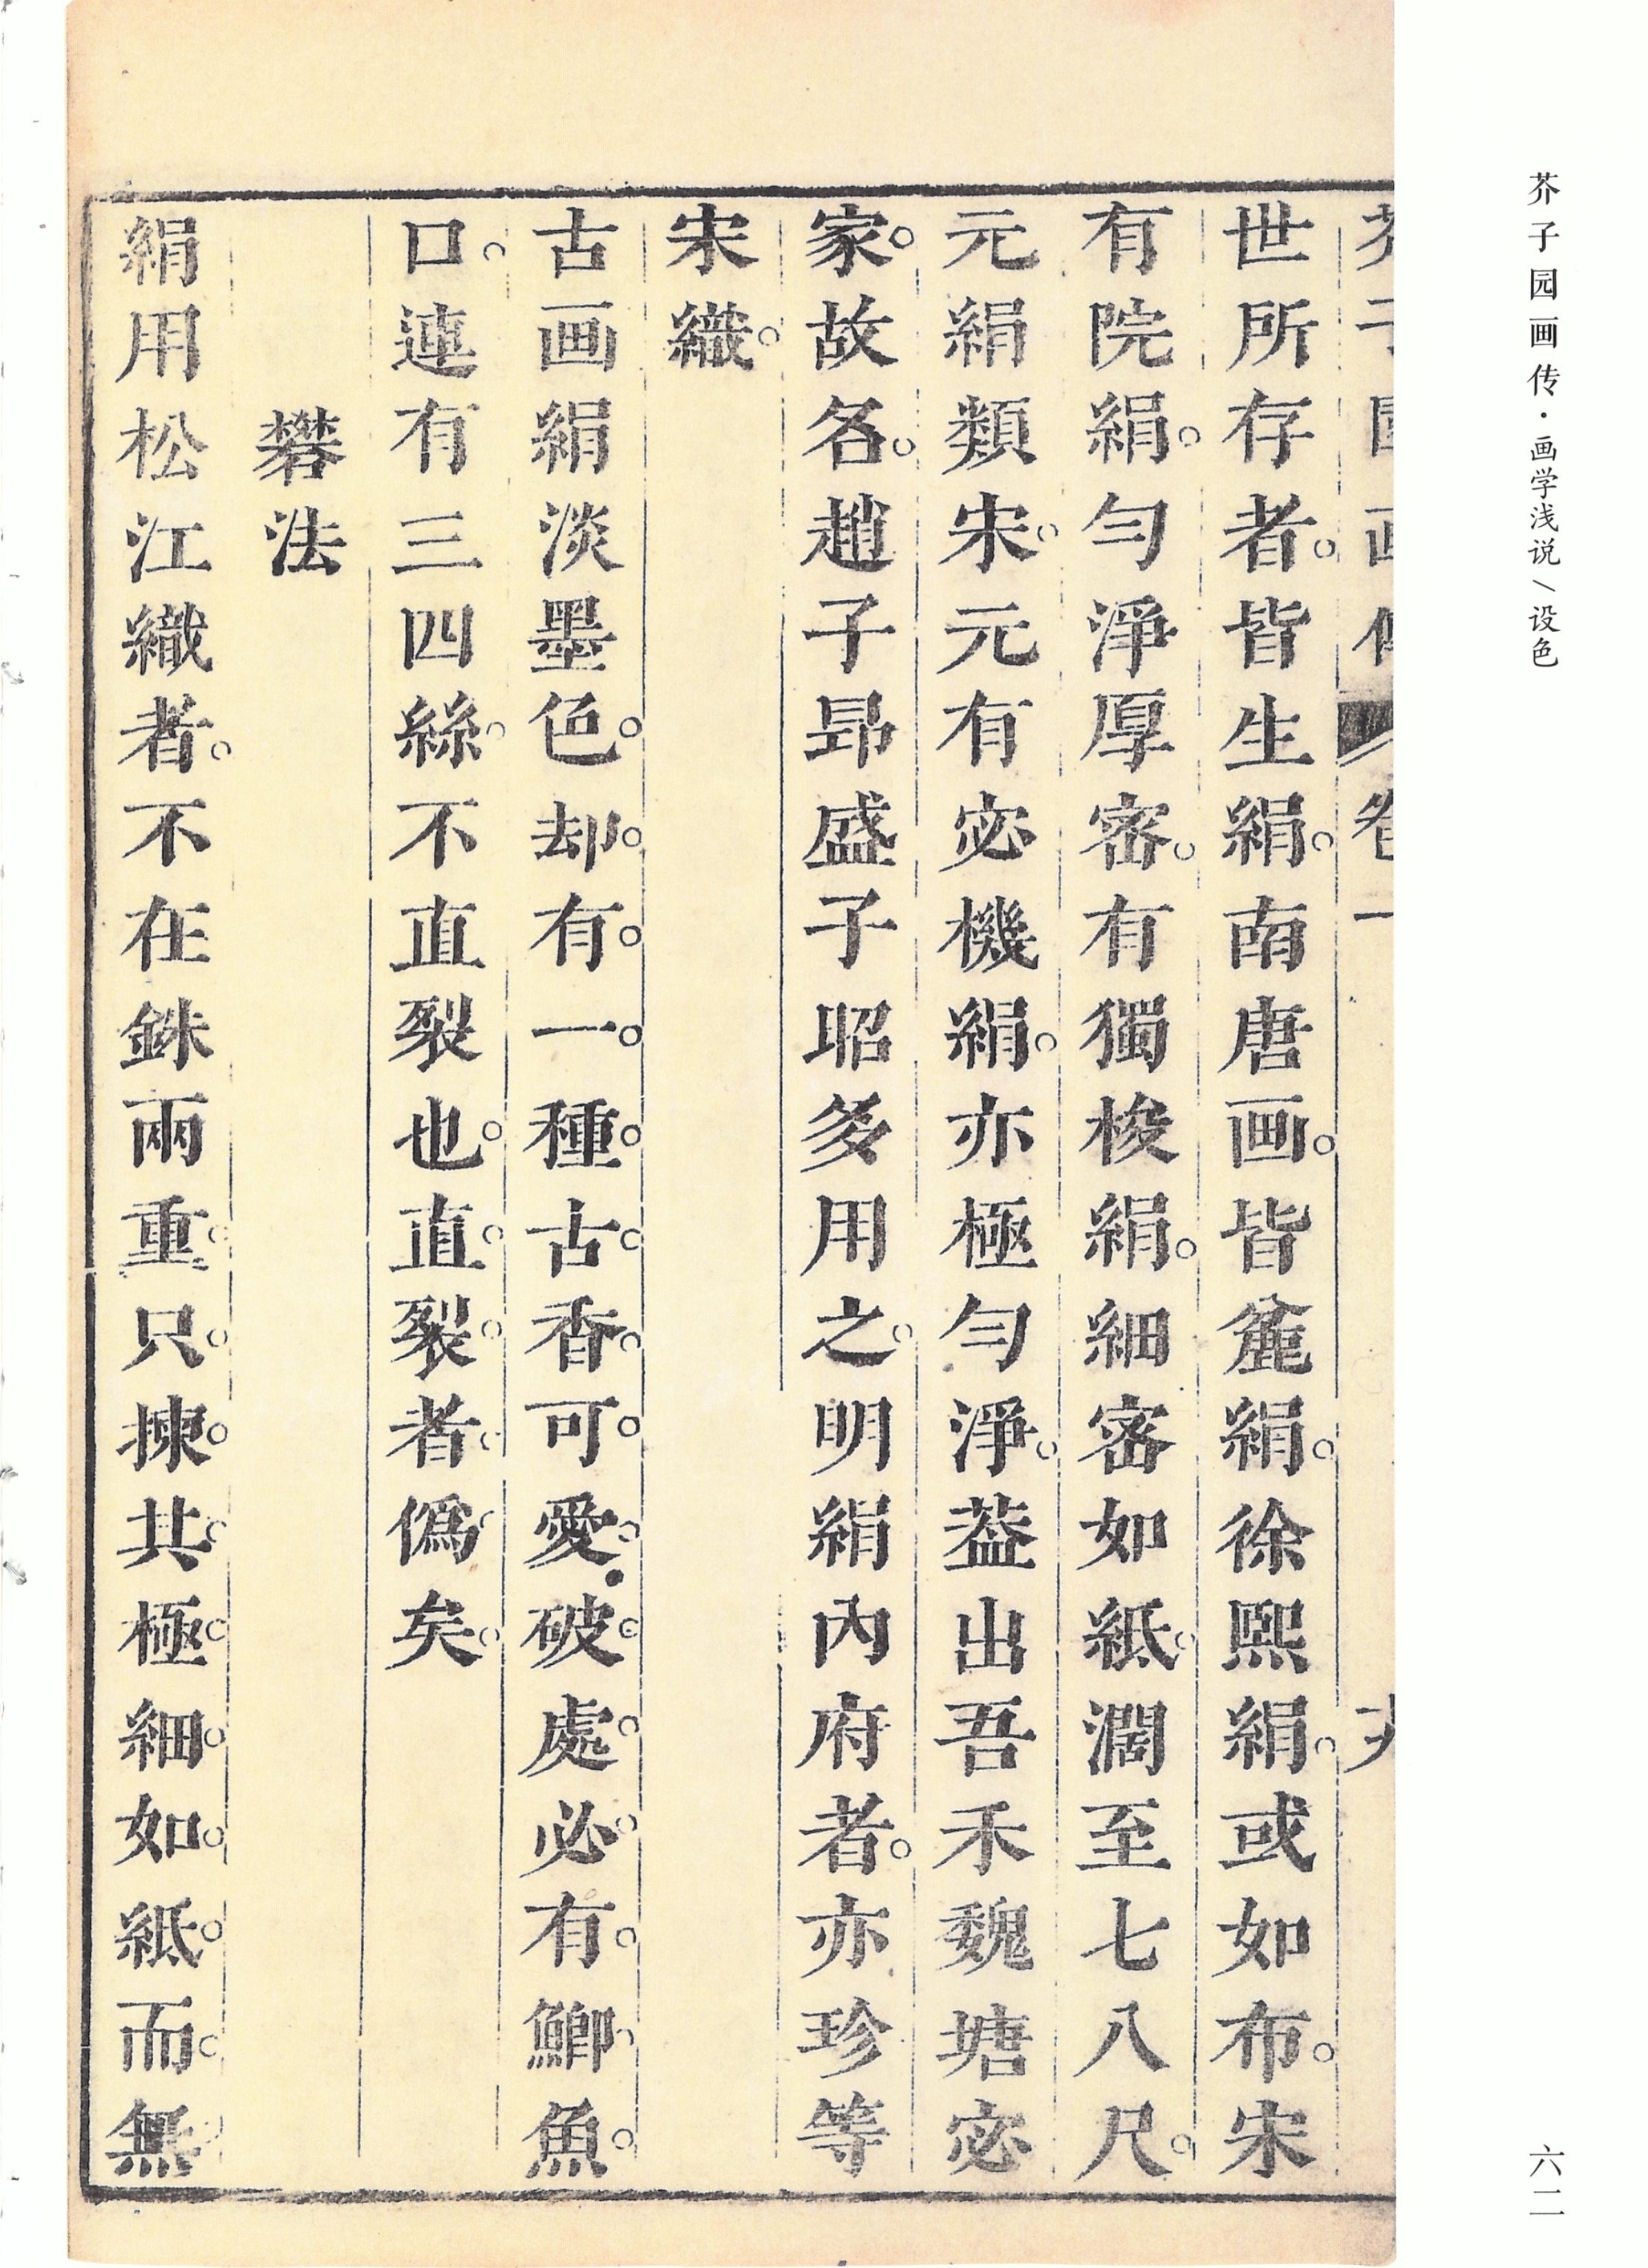 芥子园画传·画学浅说/设色
六二
世所存者。皆生絹。南唐画。皆麄絹。徐熙絹。或如布。宋
有院絹。勻淨厚密。有獨梭絹。細密如紙。濶至七八尺。
元絹類宋。元有宓機絹。亦極勻淨。葢出吾禾魏塘宓
家。故名。趙子昻盛子昭多用之。明絹內府者。亦珍等
宋織。
古画絹淡墨色。却有一種古香可愛。破處必有鯽魚
口。連有三四絲。不直裂也。直裂者僞矣。
礬法
絹用松江織者。不在銖兩重。只揀其極細如紙而無